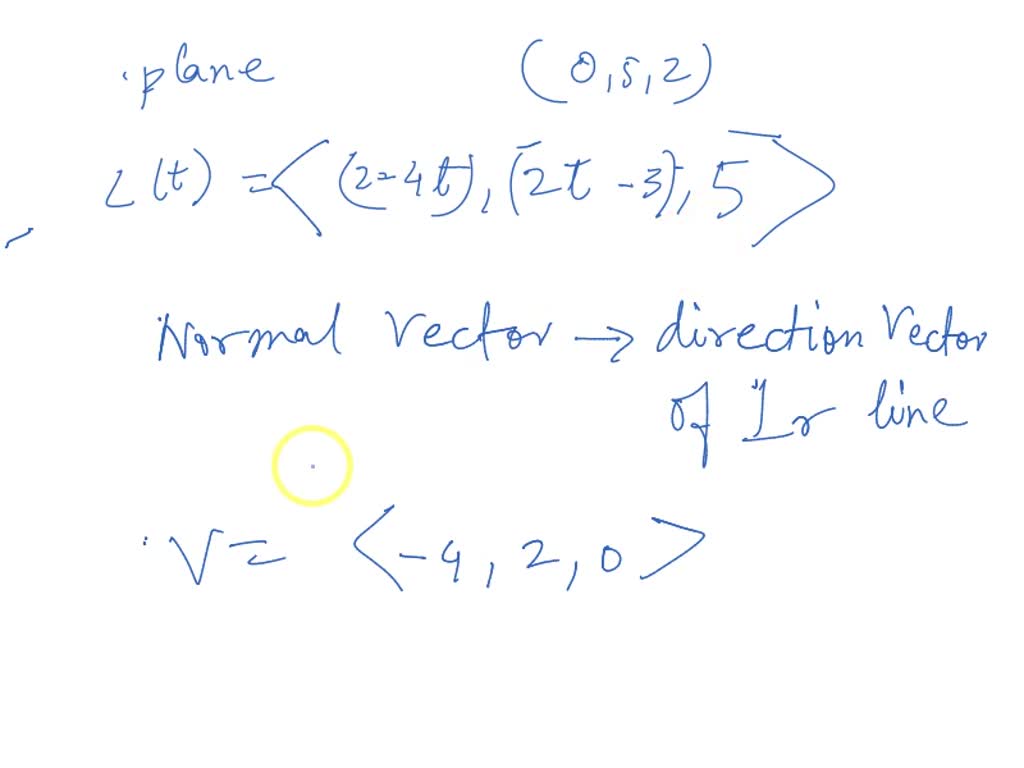 plane (0,5,2)
L(t) = <(2-4t), (2t-3), 5>
Normal Vector → direction Vector
of ⊥r line
V = <-4, 2, 0>